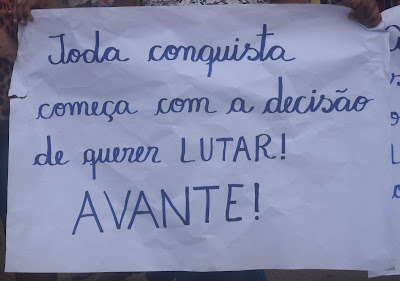 Toda conquista
começa com a decisão
de querer LUTAR!
AVANTE!